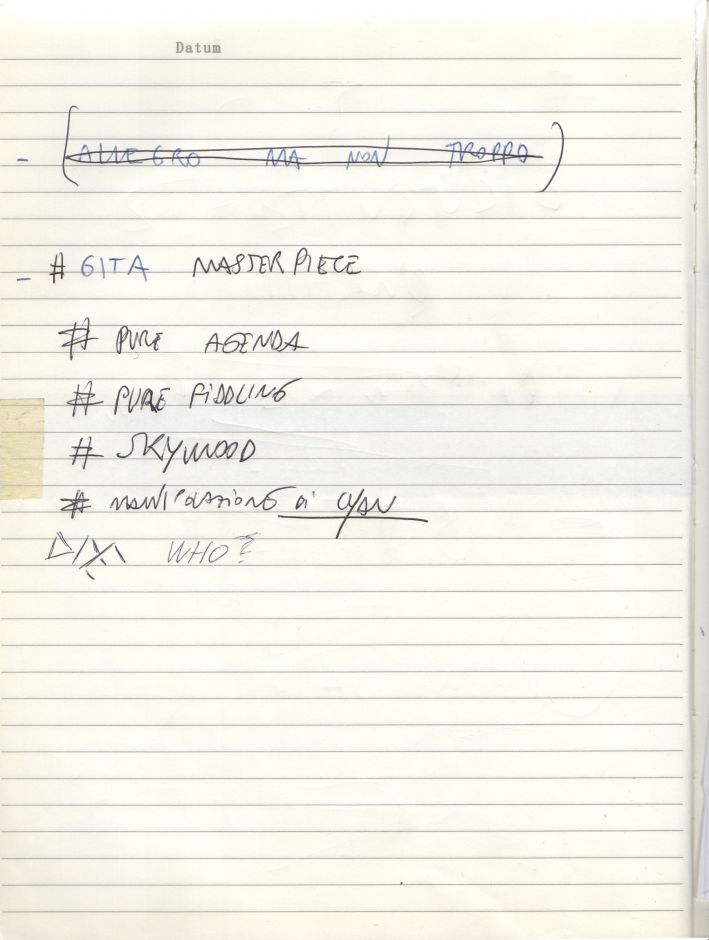 Datum
- (ALLEGRO MA NON TROPPO)
- # GITA MASTERPIECE
# PURE AGENDA
# PURE FIDDLING
# SKYWOOD
# MANIPOLAZIONE di CYAN
WHO?